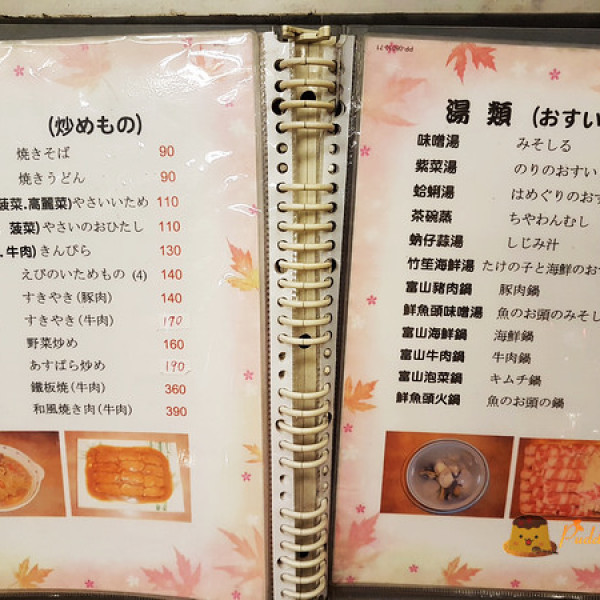 (炒めもの)
焼きそば 90
焼きうどん 90
菠菜.高麗菜)やさいいため 110
菠菜)やさいのおひたし 110
.牛肉)きんぴら 130
えびのいためもの (4) 140
すきやき(豚肉) 140
すきやき(牛肉) 170
野菜炒め 160
あすぱら炒め 190
鐵板燒(牛肉) 360
和風焼き肉(牛肉) 390
湯 類 (おすい
味噌湯 みそしる
紫菜湯 のりのおすい
蛤蜊湯 はめぐりのおす
茶碗蒸 ちやわんむし
蚋仔蒜湯 しじみ汁
竹笙海鮮湯 たけの子と海鮮のおす
富山豬肉鍋 豚肉鍋
鮮魚頭味噌湯 魚のお頭のみそし
富山海鮮鍋 海鮮鍋
富山牛肉鍋 牛肉鍋
富山泡菜鍋 キムチ鍋
鮮魚頭火鍋 魚のお頭の鍋